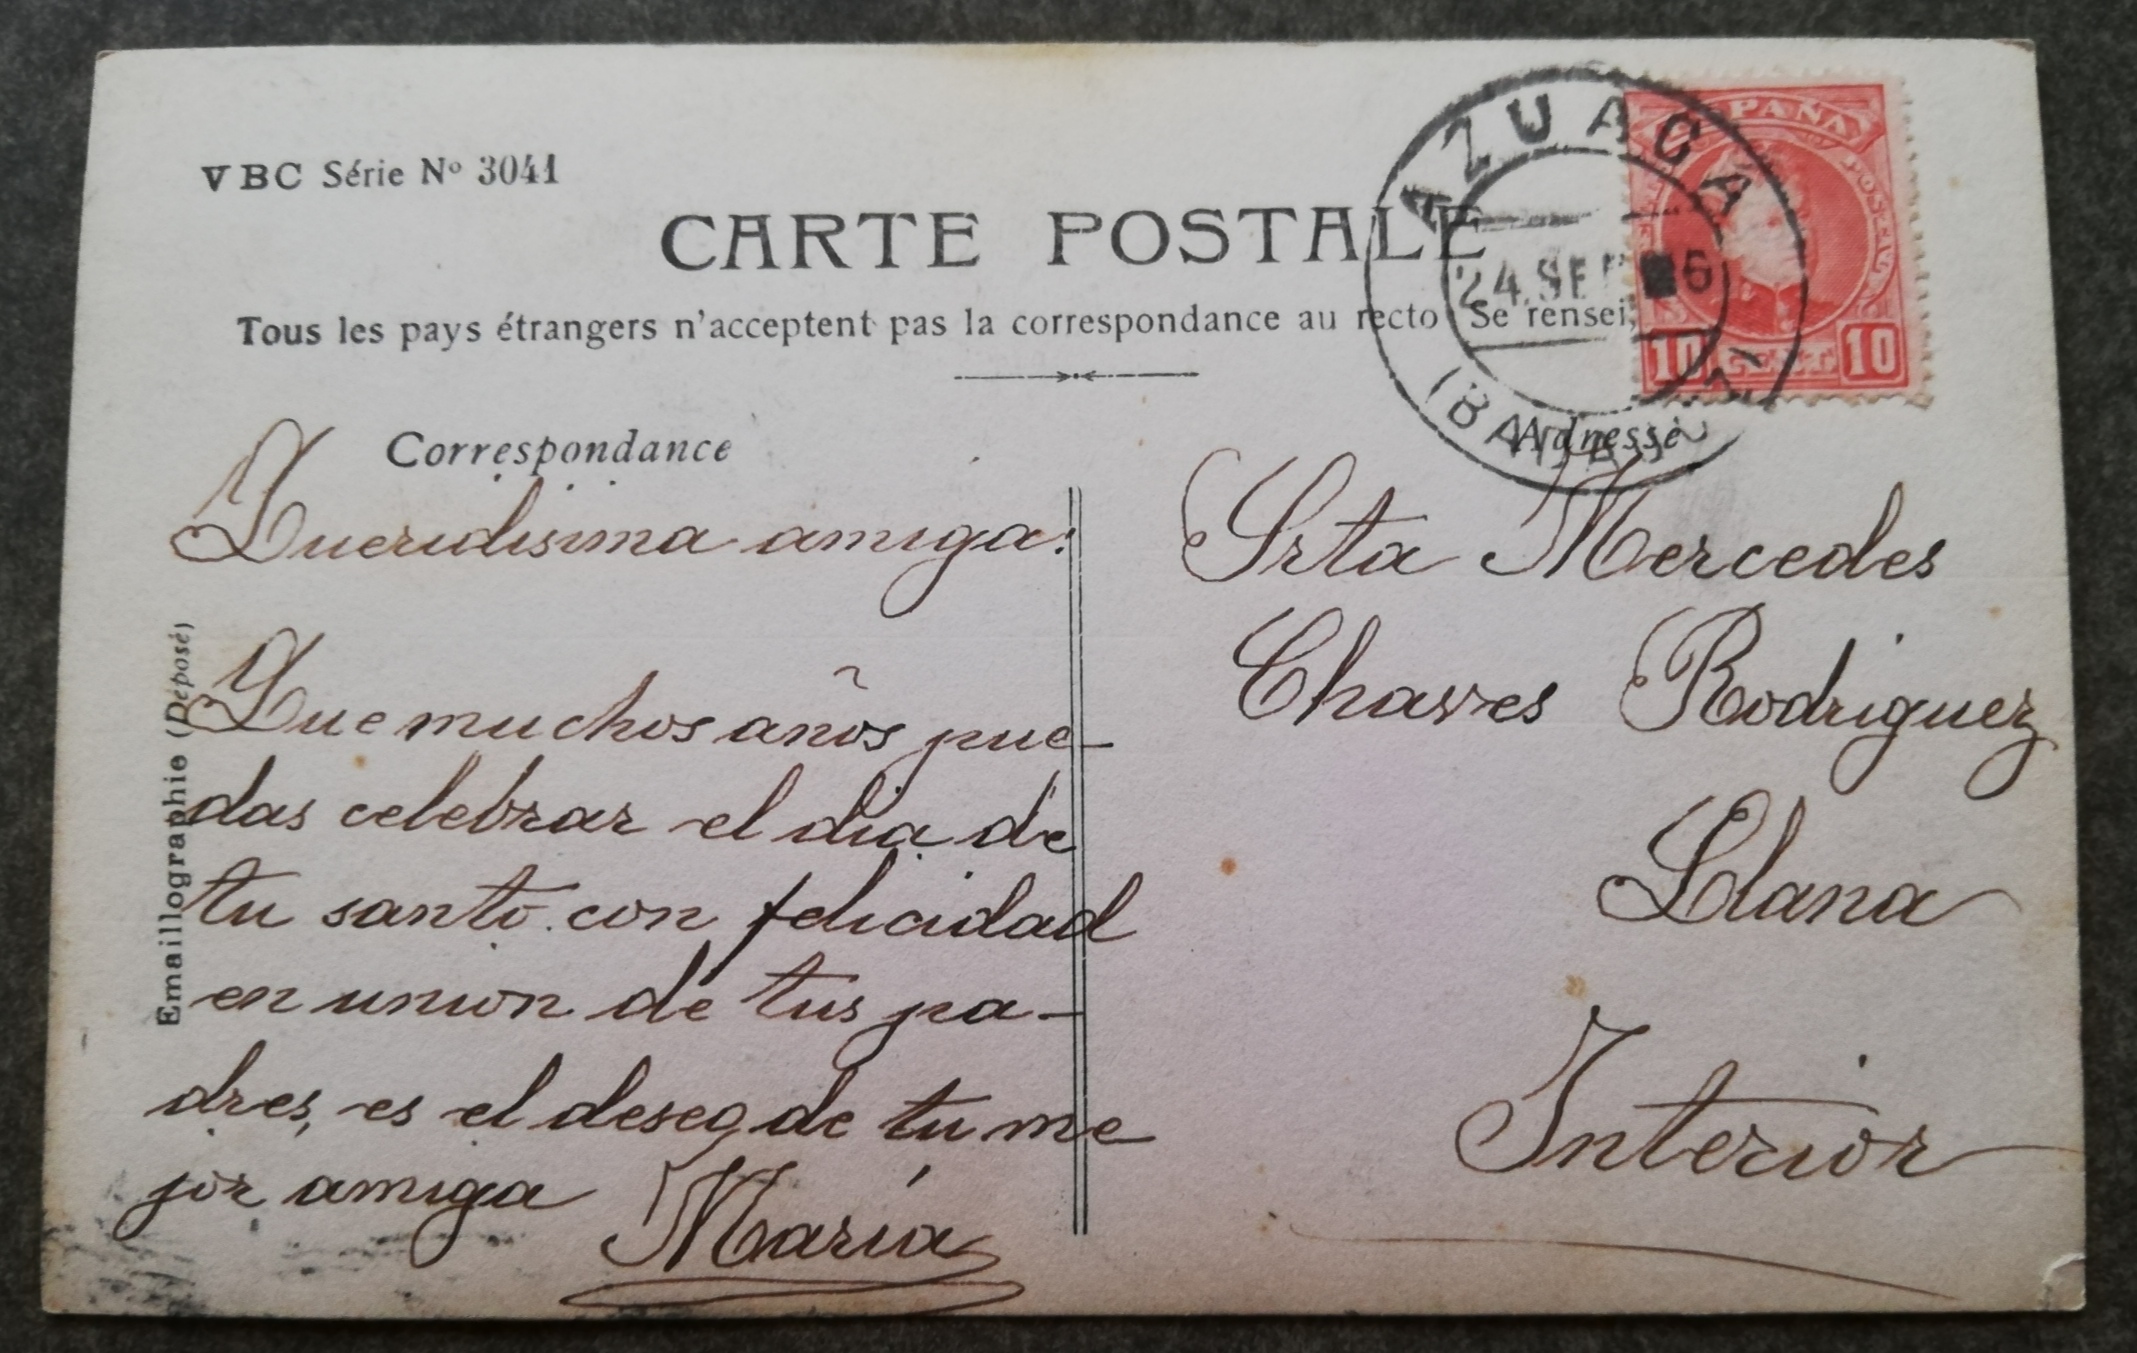 VBC Série Nº 3041
CARTE POSTALE
Tous les pays étrangers n'acceptent pas la correspondance au recto Se rensei
AZUAGA
24.SEP 6
(BADAJOZ)
ESPAÑA
10 CENT. 10
Correspondance
Queridisima amiga:
Que muchos años pue-
das celebrar el dia de
tu santo con felicidad
en union de tus pa-
dres, es el deseo de tu me-
jor amiga
María
Emaillographie (Déposé)
Adresse
Srta Mercedes
Chaves Rodriguez
Llana
Interior